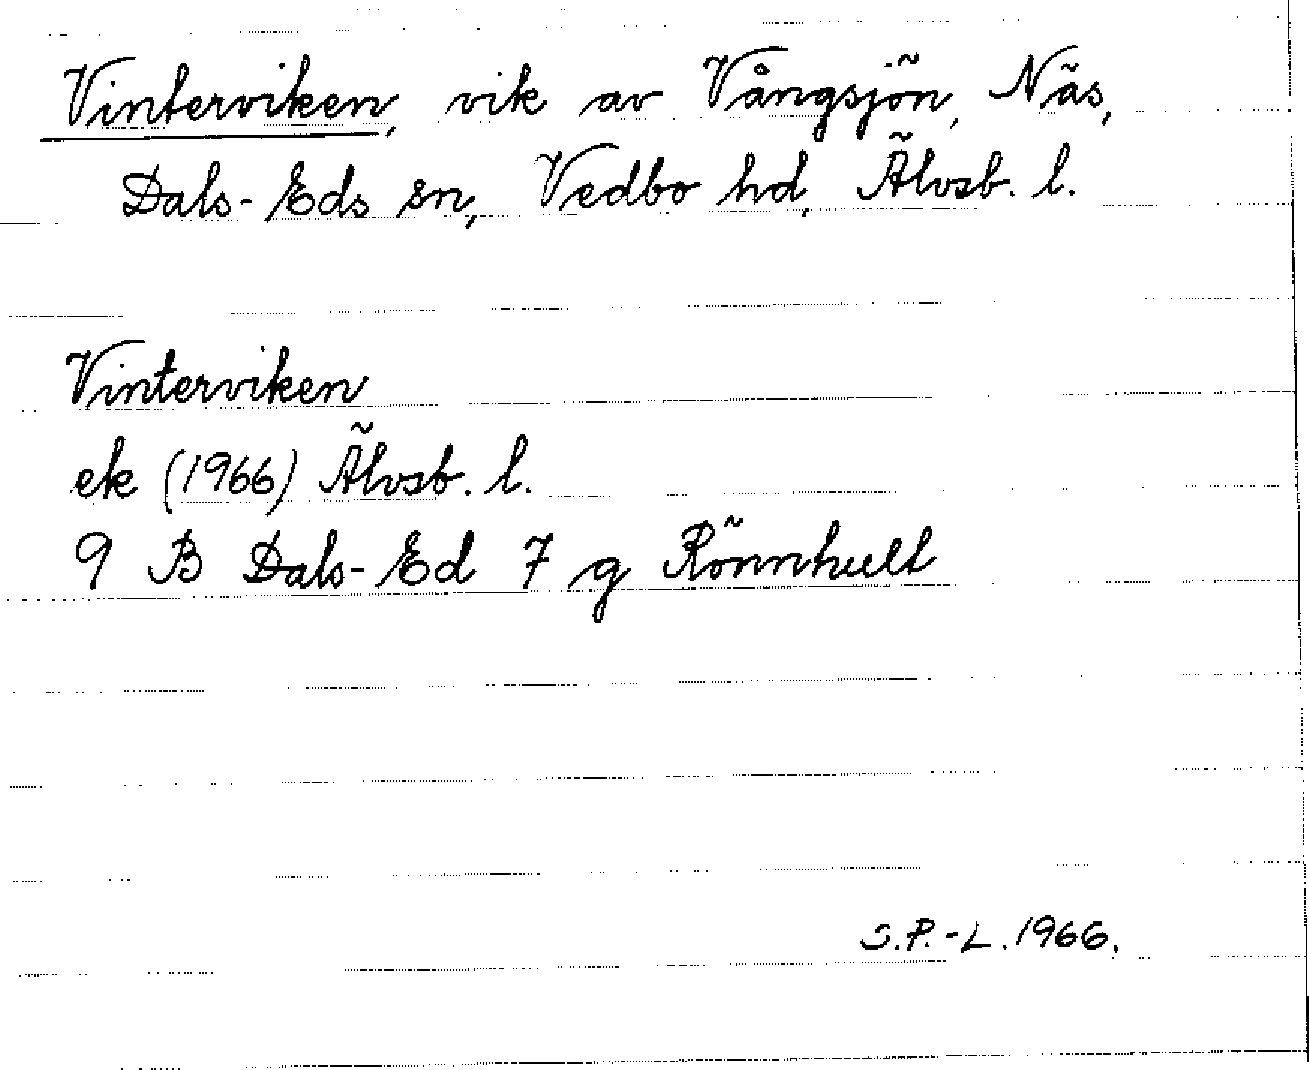 Vinterviken, vik av Vångsjön, Näs,
Dals-Eds sn, Vedbo hd, Älvsb. l.
Vinterviken
ek (1966) Älvsb. l.
9 B Dals-Ed 7 g Rönnhult
S.P.-L. 1966.